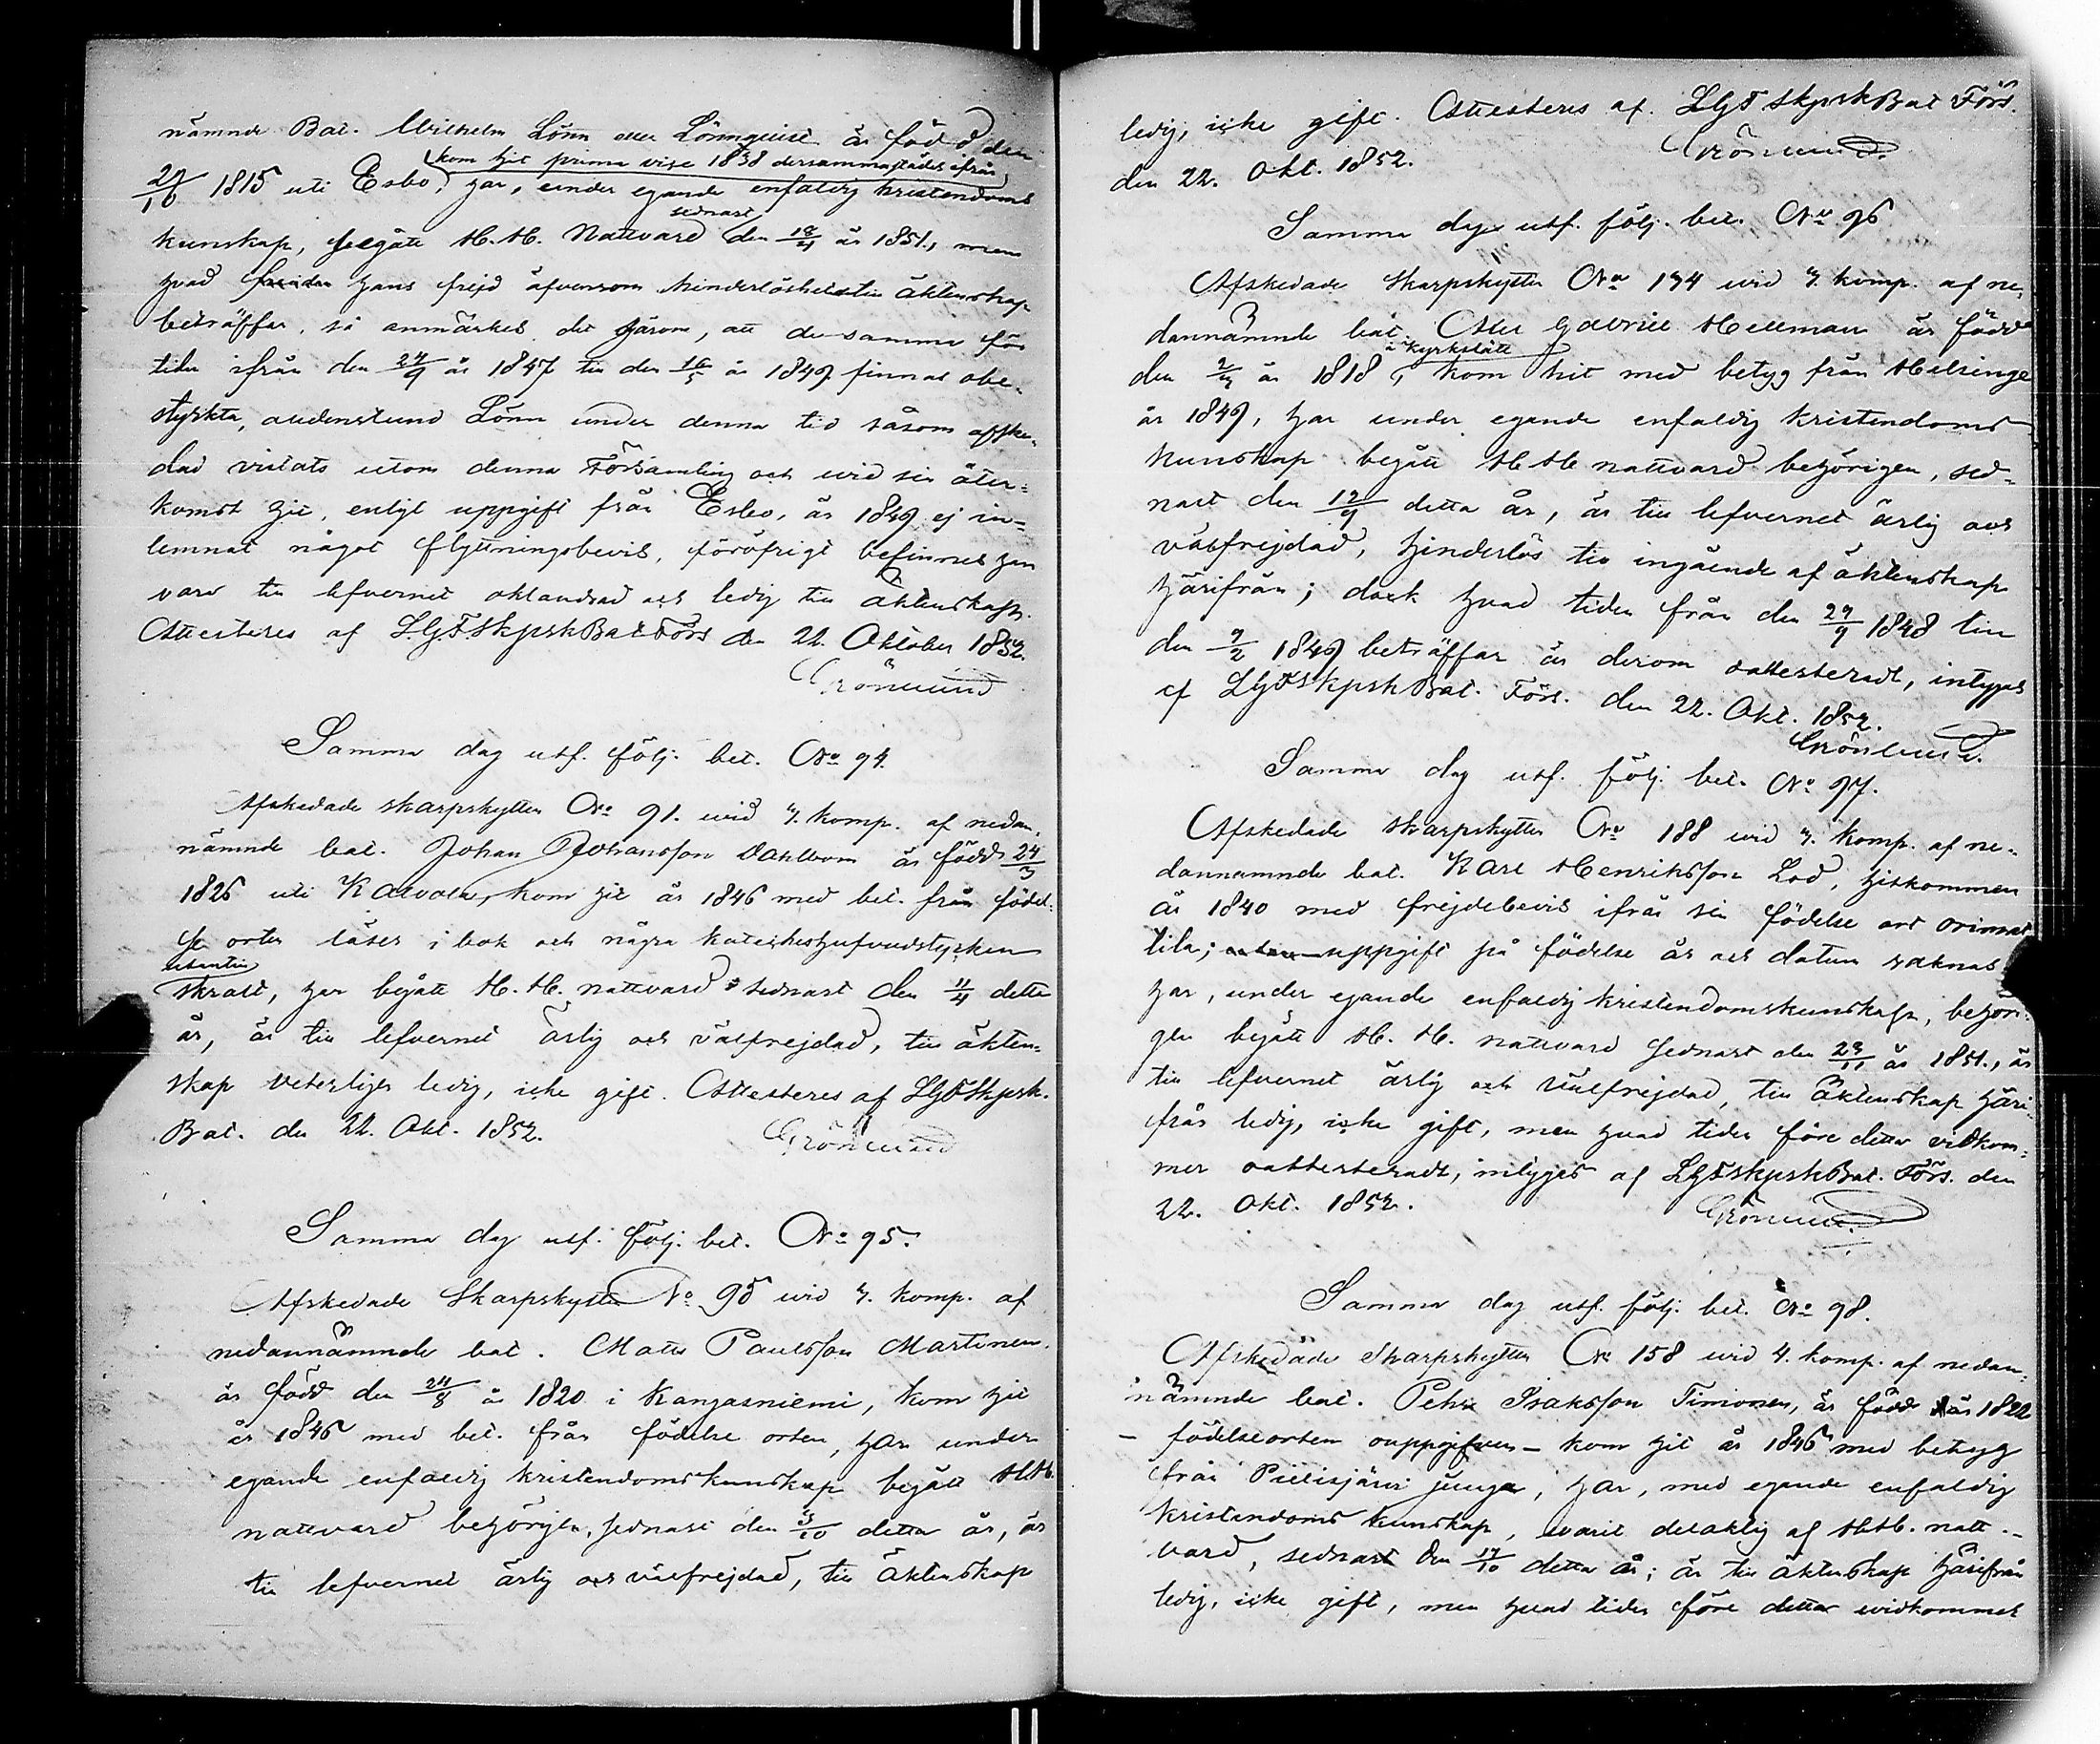 nämnde Bat. Wilhelm Lönn eller Lönnquist är född den
kom hit prima vise 1838 dersammastädes ifrån
29/10 1815 uti Esbo, har, under egande enfaldig kristendoms
sednast
kunskap, begått H. H. Nattvard den 18/4 år 1851, men
hvad hans frejd äfvensom hinderlösheten till äktenskap
beträffar, så anmärkes det härom, att de samma för
tiden ifrån den 24/9 år 1847 till den 16/5 år 1849 finnas obe-
styrkta, alldenstund Lönn under denna tid såsom afske-
dad vistats utom denna Församling och vid sin åter-
komst hit, enligt uppgift från Esbo, år 1849 ej in-
lemnat något flyttningsbevis, föröfrigt befinnes han
vara till lefvernet oklandrad och ledig till äktenskap.
Attesteras af LGFSkpskBat Förs den 22. Oktober 1852.
Grönlund
Samma dag utf. följ. bet. No 94.
Afskedade skarpskytten No 91. wid 4. komp. af nedan-
nämnde bat. Johan Johansson Dahlbom är född 24/3
1826 uti Kalvola, kom hit år 1846 med bet. från födel-
se orten läser i bok och några katesheshufvudstycken
utantill
skralt, har begått H. H. nattvard sednast den 11/4 detta
år, är till lefvernet ärlig och välfrejdad, till äkten-
skap veterligen ledig, icke gift. Attesteras af LGFSkpsk.
Bat. den 22. Okt. 1852.
Grönlund
Samma dag utf. följ. bet. No 95.
Afskedade Skarpskytten No 95 wid 4. komp. af
nedannämnde bat. Matts Paulsson Martinen
är född den 24/8 år 1820 i Kangasniemi, kom hit
år 1846 med bet. från födelse orten, har under
egande enfaldig kristendomskunskap begått HH.
nattvard behörigen, sednast den 3/10 detta år, är
till lefvernet ärlig och välfrejdad, till äktenskap
ledig, icke gift. Attesteras af LGF SkpskBat Förs.
den 22. Okt. 1852.
Grönlund
Samma dag utf. följ. bet. No 96
Afskedade Skarpskytten No 134 wid 4. komp. af ne-
dannämnde bat. Gabriel Hellman är född
i Kyrkslätt
den 2/4 år 1818, kom hit med betyg från Helsinge
år 1849, har under egande enfaldig kristendoms
kunskap begått H H nattvard behörigen, sed-
nast den 12/9 detta år, är till lefvernet ärlig och
välfrejdad, hinderlös till ingående af äktenskap
härifrån; dock hvad tiden från den 29/9 1848 till
den 9/2 1849 beträffar är derom oattesteradt, intygas
af LGFSkpskBat. Förs. den 22. Okt. 1852.
Grönlund.
Samma dag utf. följ. bet. No 97.
Afskedade Skarpskytten No 188 wid 4. komp. af ne-
dannamnde bat. Karl Henriksson Lod, hitkommen
år 1840 med frejdebevis ifrån sin födelse ort Orimat-
tila; uppgift på födelse år och datum saknas
har, under egande enfaldig kristendomskunskap, behöri-
gen begått H. H. nattvard sednast den 23/11 år 1851., är
till lefvernet ärlig och välfrejdad, till äktenskap häri-
från ledig, icke gift, men hvad tiden före detta vidkom-
mer oattesteradt, intygas af LGFSkpskBat. Förs. den
22. Okt. 1852.
Grönlund.
Samma dag utf. följ. bet. No 98.
Afskedade Skarpskytten No 158 wid 4. komp. af nedan-
nämnde bat. Pehr Isaksson Timonen, är född år 1822
– födelseorten ouppgifven – kom hit år 1846 med betyg
från Pielisjärvi, har, med egande enfaldig
kristendoms kunskap, warit delaktig af H.H. natt-
vard, sednast den 17/10 detta år; är till äktenskap härifrån
ledig, icke gift, men hvad tiden före detta widkommer